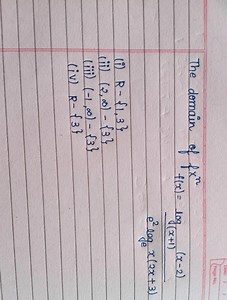 The domain of fxⁿ
f(x) = log₍ₓ₊₁₎(x-2) / e^2 logₑ x (2x+3)
(i) R - {1,3}
(ii) (2,∞) - {3}
(iii) (-1,∞) - {3}
(iv) R - {3}